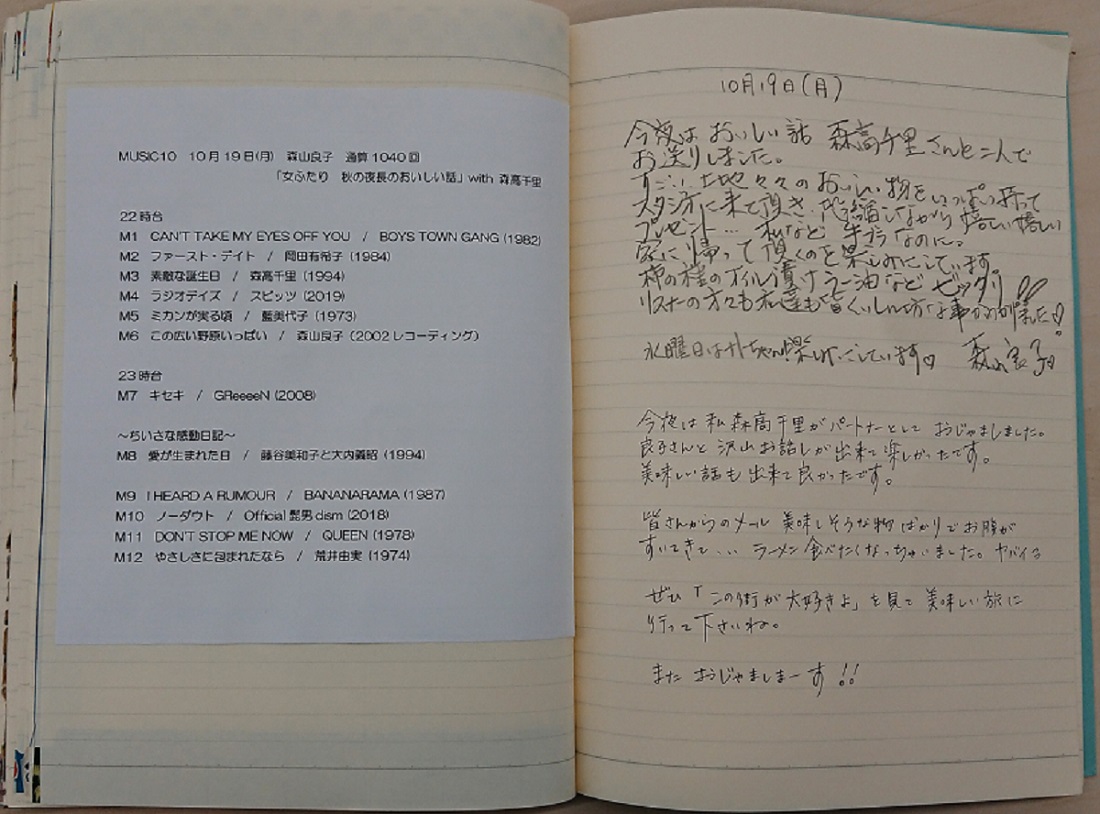 MUSIC10 10月19日(月) 森山良子 通算1040回
「女ふたり 秋の夜長のおいしい話」with 森高千里
22時台
M1 CAN'T TAKE MY EYES OFF YOU / BOYS TOWN GANG (1982)
M2 ファースト・デイト / 岡田有希子 (1984)
M3 素敵な誕生日 / 森高千里 (1994)
M4 ラジオデイズ / スピッツ (2019)
M5 ミカンが実る頃 / 藍美代子 (1973)
M6 この広い野原いっぱい / 森山良子 (2002 レコーディング)
23時台
M7 キセキ / GReeeeN (2008)
～ちいさな感動日記～
M8 愛が生まれた日 / 藤谷美和子と大内義昭 (1994)
M9 I HEARD A RUMOUR / BANANARAMA (1987)
M10 ノーダウト / Official髭男dism (2018)
M11 DON'T STOP ME NOW / QUEEN (1978)
M12 やさしさに包まれたなら / 荒井由実 (1974)
10月19日(月)
今夜は おいしい話 森高千里さんと二人で
お送りしました。
すごい 土地々々の おいしい物を いっぱい持って
スタジオに来て頂き、しながら 嬉しい嬉しい
プレゼント… 私など 手ブラなのに。
家に帰って頂くのを楽しみにしています。
柿の種のオイル漬け ラー油など ビックリ
リスナーの方々も 私達も
水曜日は 楽しみにしています♡ 森山良子
今夜は 私 森高千里がパートナーとして おじゃましました。
良子さんと 沢山お話しが出来て楽しかったです。
美味しい話も出来て良かったです。
皆さんからのメール 美味しそうな物ばかりでお腹が
すいてきて... ラーメン食べたくなっちゃいました。ヤバイ
ぜひ「この街が大好きよ」を見て 美味しい旅に
行って下さいね。
また おじゃましまーす!!